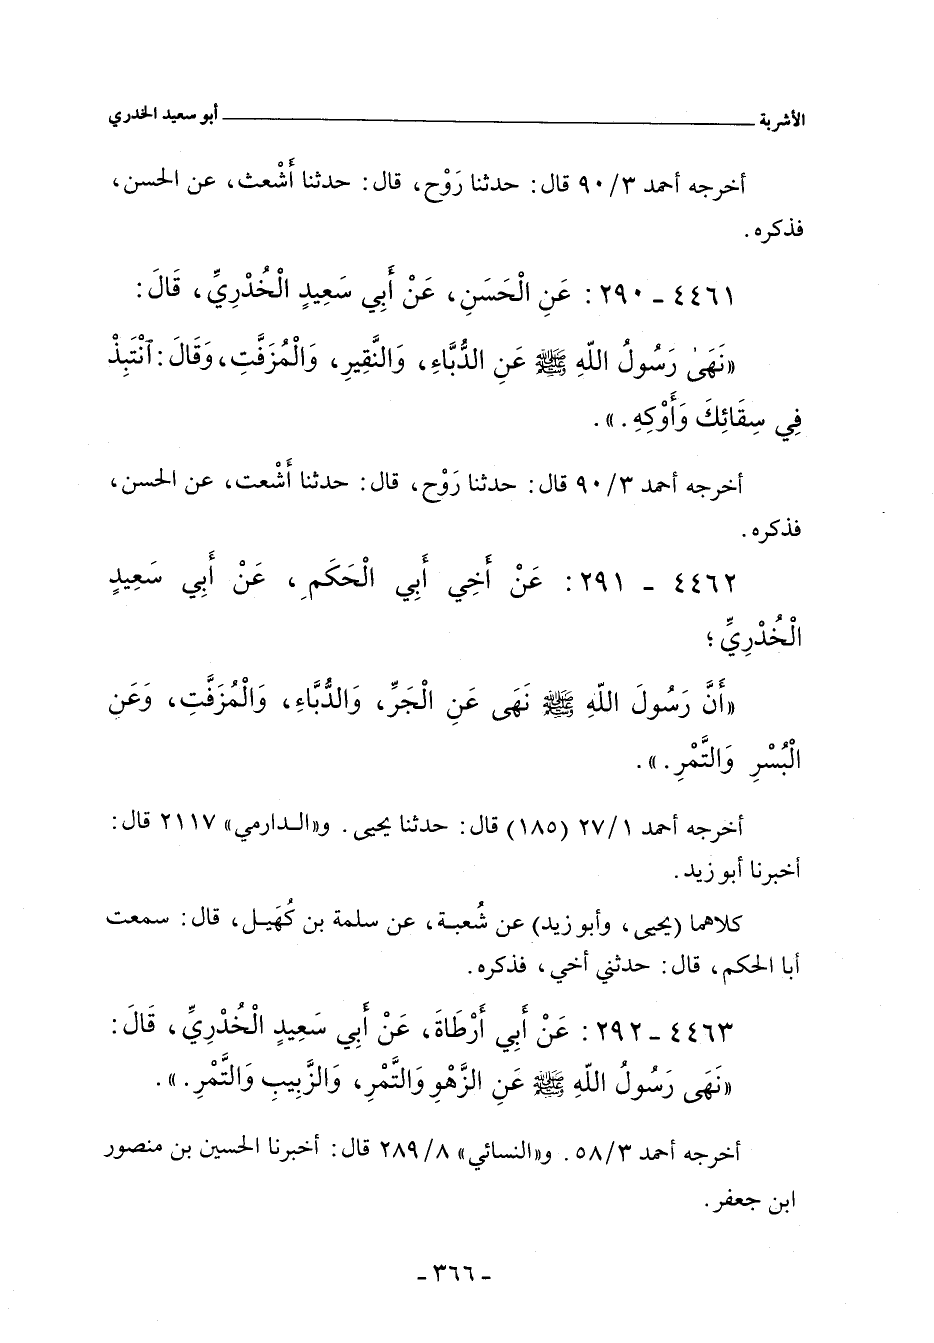 الأشربة ــــــــــــــــــــــــ أبو سعيد الخدري
أخرجه أحمد ٩٠/٣ قال: حدثنا رَوْح، قال: حدثنا أَشْعث، عن الحسن،
فذكره.
٤٤٦١ ـ ٢٩٠: عَنِ الْحَسَنِ، عَنْ أَبِي سَعِيدٍ الْخُدْرِيِّ، قَالَ:
«نَهَىٰ رَسُولُ اللّهِ ﷺ عَنِ الدُّبَّاءِ، وَالنَّقِيرِ، وَالْمُزَفَّتِ، وَقَالَ: ٱنْتَبِذْ
فِي سِقَائِكَ وَأَوْكِهِ.».
أخرجه أحمد ٩٠/٣ قال: حدثنا رَوْح، قال: حدثنا أَشْعت، عن الحسن،
فذكره.
٤٤٦٢ ـ ٢٩١: عَنْ أَخِي أَبِي الْحَكَمِ، عَنْ أَبِي سَعِيدٍ
الْخُدْرِيِّ؛
«أَنَّ رَسُولَ اللّهِ ﷺ نَهَى عَنِ الْجَرِّ، وَالدُّبَّاءِ، وَالْمُزَفَّتِ، وَعَنِ
الْبُسْرِ وَالتَّمْرِ.».
أخرجه أحمد ٢٧/١ (١٨٥) قال: حدثنا يحيى. و«الدارمي» ٢١١٧ قال:
أخبرنا أبو زيد.
كلاهما (يحيى، وأبو زيد) عن شُعبة، عن سلمة بن كُهَيل، قال: سمعت
أبا الحكم، قال: حدثني أخي، فذكره.
٤٤٦٣ ـ ٢٩٢: عَنْ أَبِي أَرْطَاةَ، عَنْ أَبِي سَعِيدٍ الْخُدْرِيِّ، قَالَ:
«نَهَى رَسُولُ اللّهِ ﷺ عَنِ الزَّهْوِ وَالتَّمْرِ، وَالزَّبِيبِ وَالتَّمْرِ.».
أخرجه أحمد ٥٨/٣. و«النسائي» ٢٨٩/٨ قال: أخبرنا الحسين بن منصور
ابن جعفر.
ـ ٣٦٦ ـ